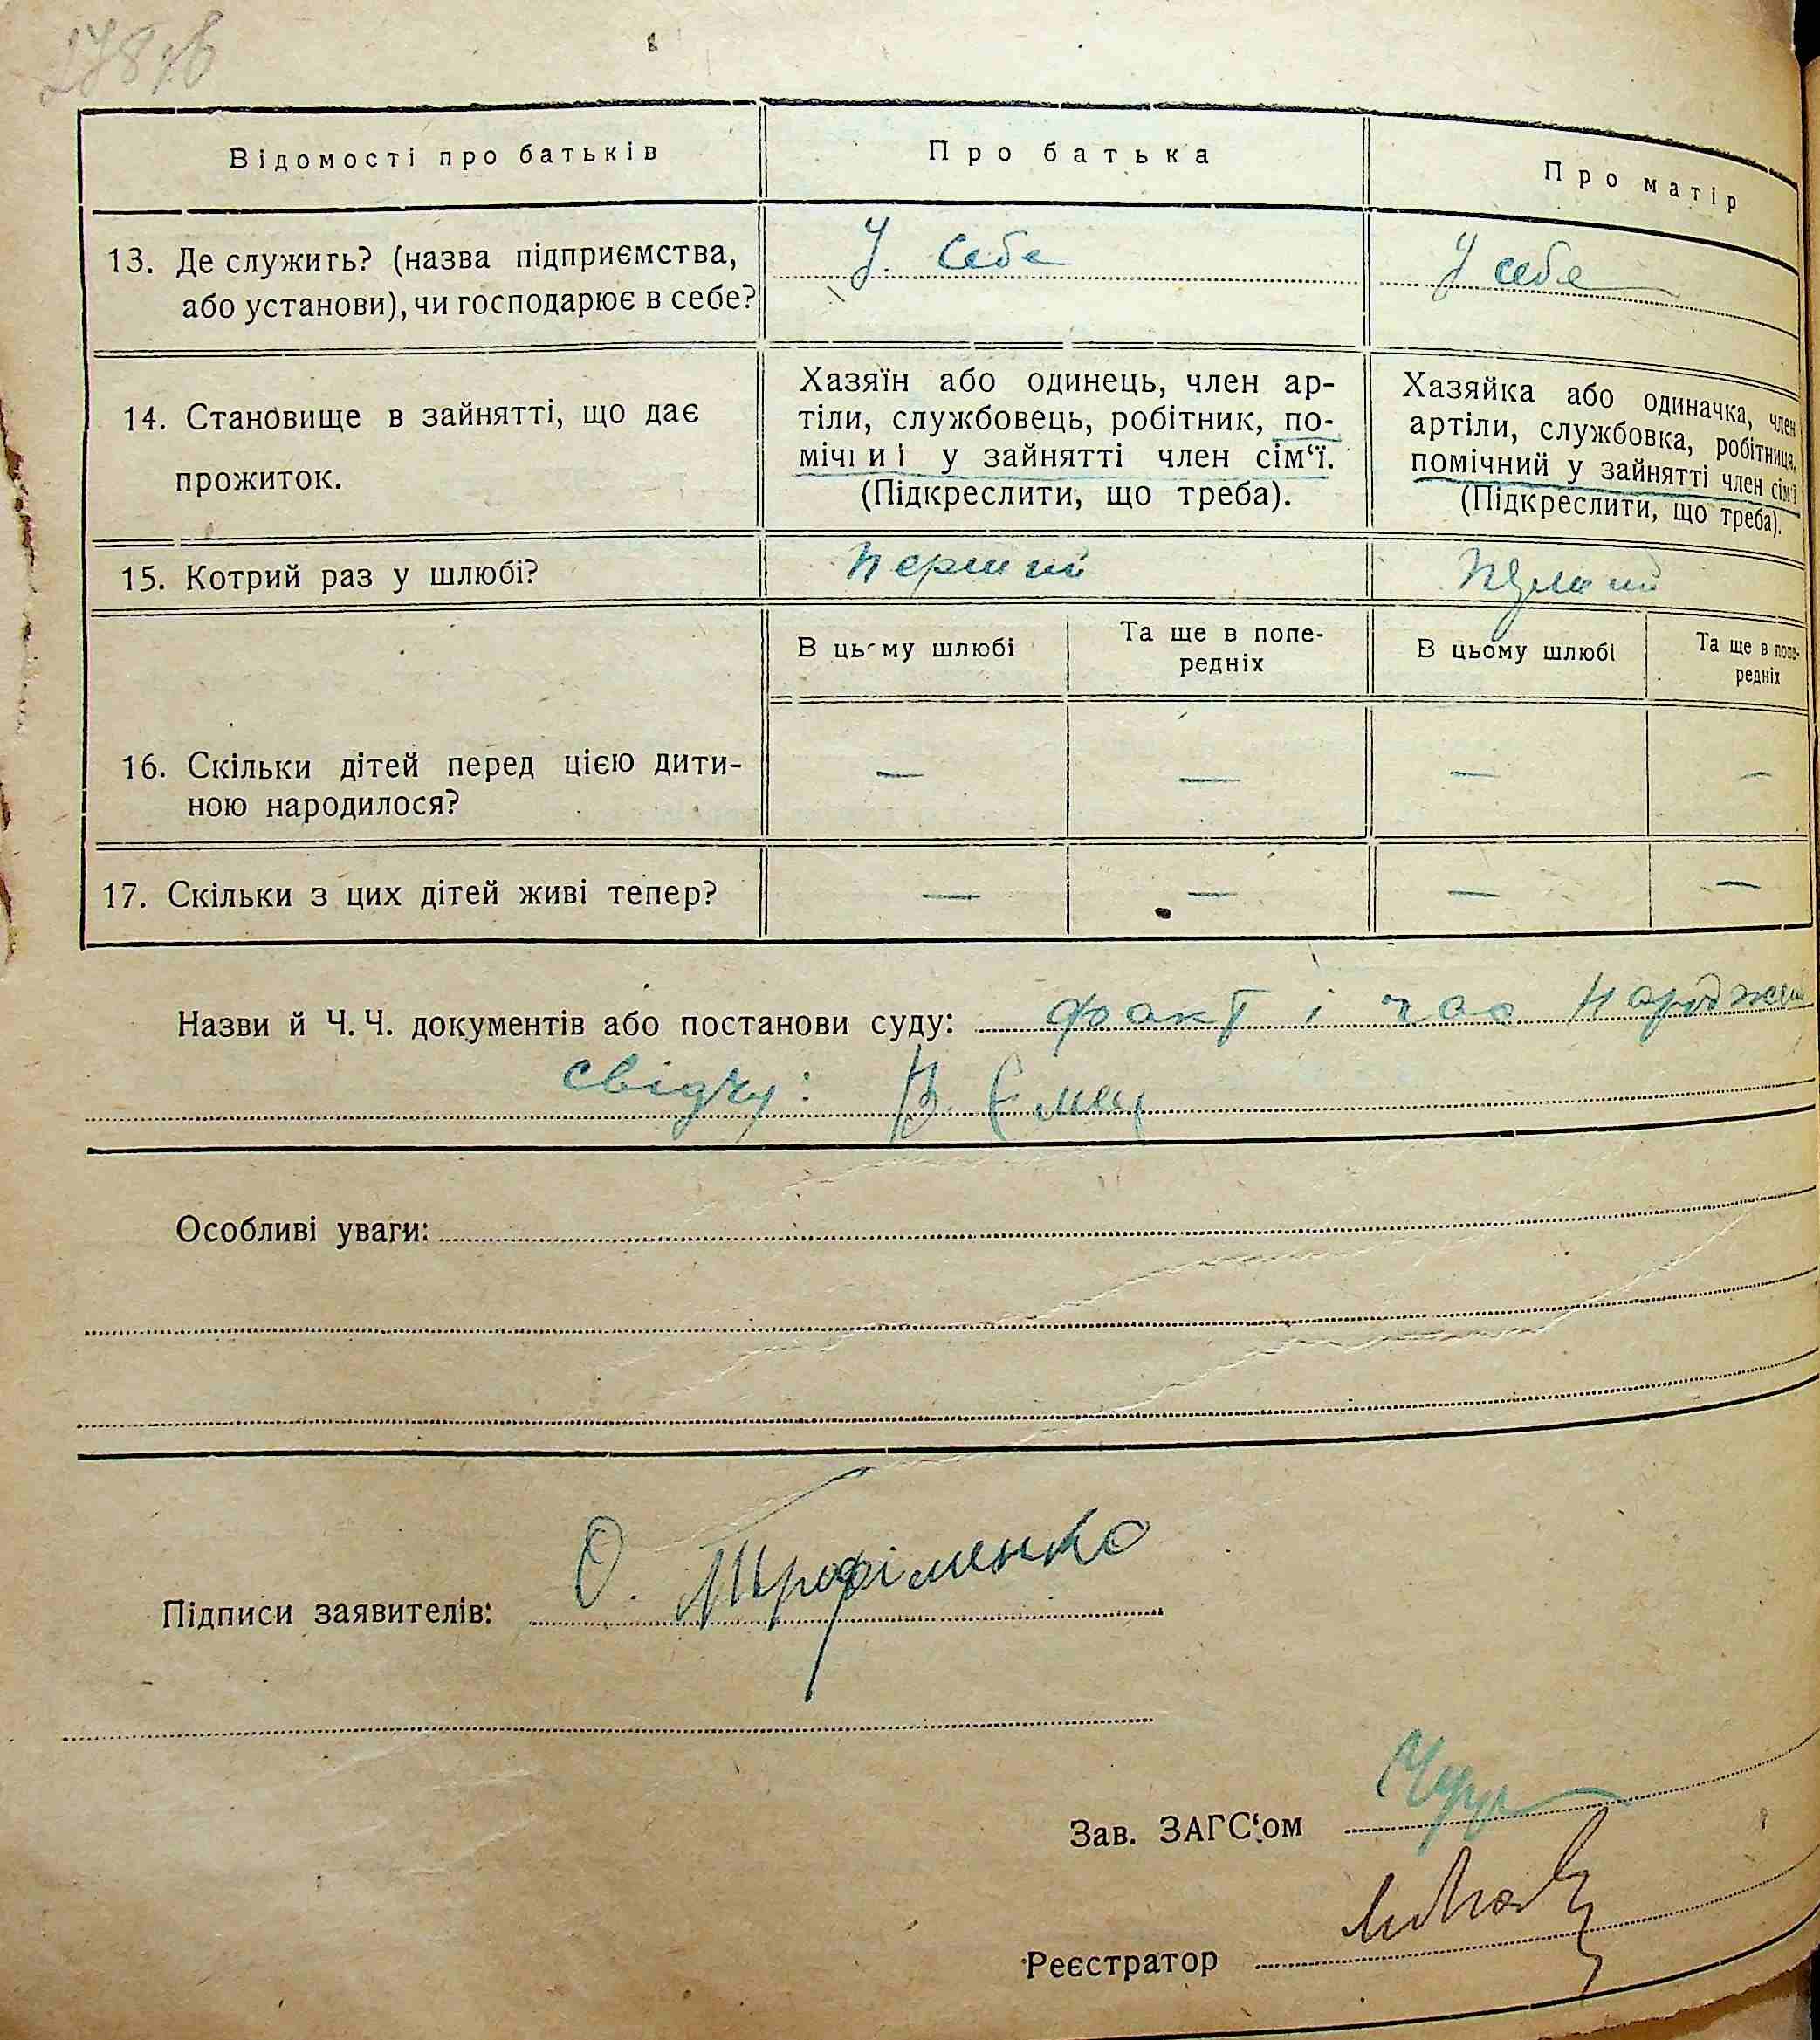 278 зв
Відомості про батьків
Про батька
Про матір
13. Де служить? (назва підприємства,
або установи), чи господарює в себе?
У себе
У себе
14. Становище в зайнятті, що дає
прожиток.
Хазяїн або одинець, член ар-
тіли, службовець, робітник, по-
мічний у зайнятті член сім‘ї.
(Підкреслити, що треба).
Хазяйка або одиначка, член
артіли, службовка, робітниця,
помічний у зайнятті член сім‘ї
(Підкреслити, що треба).
15. Котрий раз у шлюбі?
перший
перший
В цьому шлюбі
Та ще в попе-
редніх
В цьому шлюбі
Та ще в попе-
редніх
16. Скільки дітей перед цією дити-
ною народилося?
— — — —
17. Скільки з цих дітей живі тепер?
— — — —
Назви й Ч. Ч. документів або постанови суду: факт і час народжен
свідчу: В. Ємец
Особливі уваги:
Підписи заявителів: О. Трофіменко
Зав. ЗАГС‘ом
Реєстратор